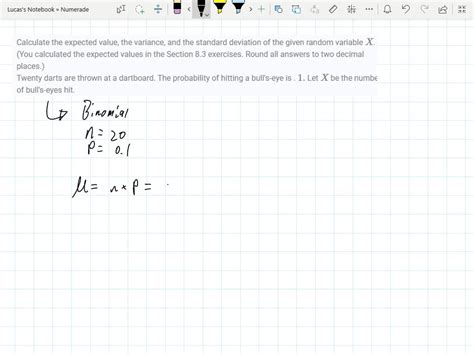 Lucas's Notebook » Numerade
Calculate the expected value, the variance, and the standard deviation of the given random variable X.
(You calculated the expected values in the Section 8.3 exercises. Round all answers to two decimal
places.)
Twenty darts are thrown at a dartboard. The probability of hitting a bull's-eye is . 1. Let X be the numbe
of bull's-eyes hit.
↳ Binomial
n = 20
P = 0.1
μ = n × P =